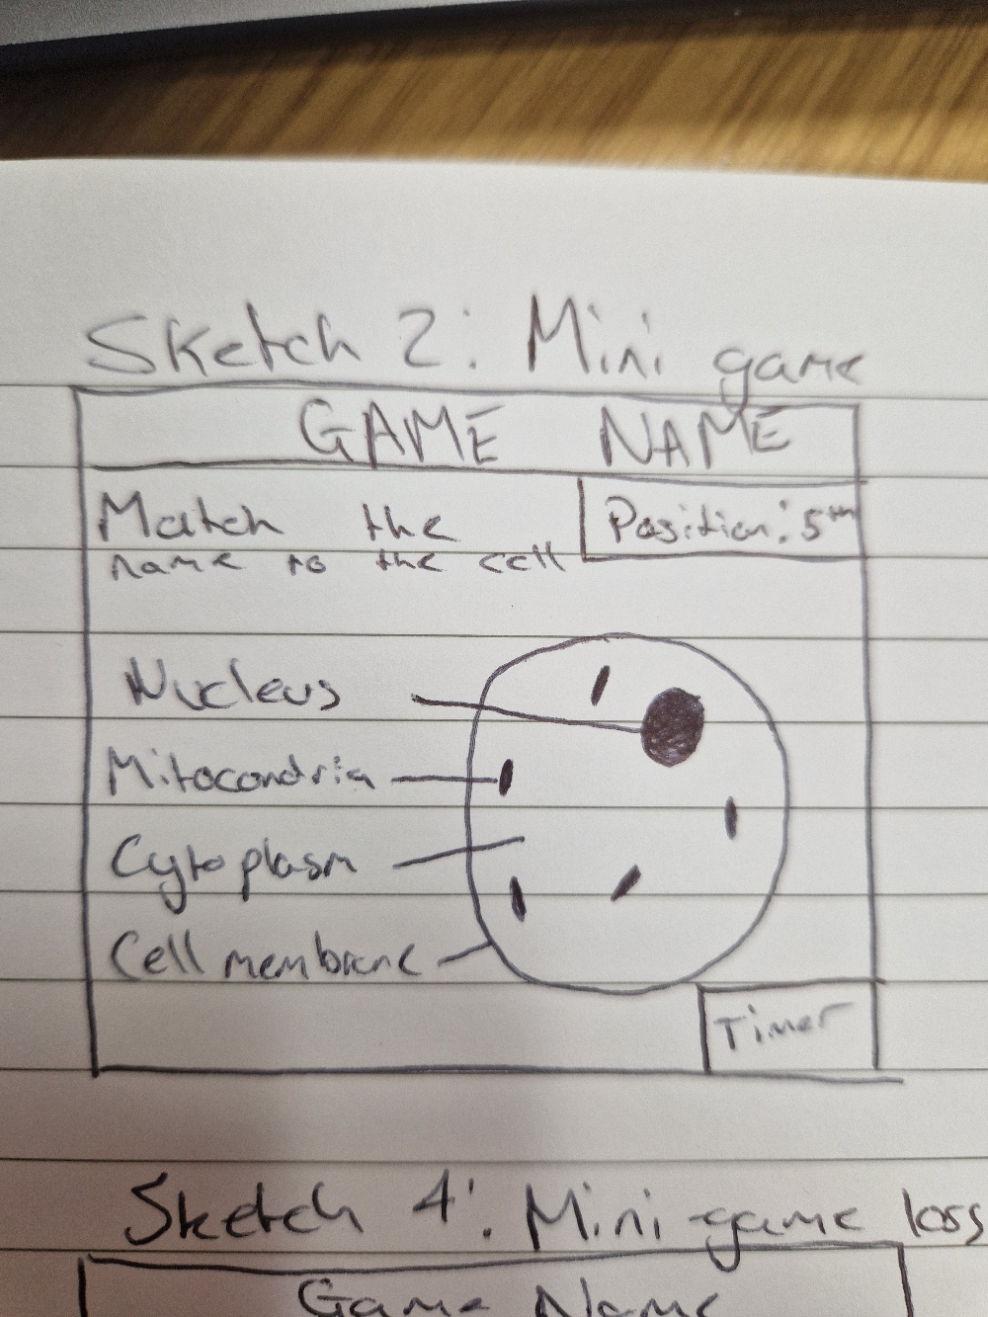 Sketch 2: Mini game
GAME NAME
Match the
name to the cell
Position: 5th
Nucleus
Mitocondria
Cytoplasm
Cell membrane
Timer
Sketch 4: Mini game loss
Game Name